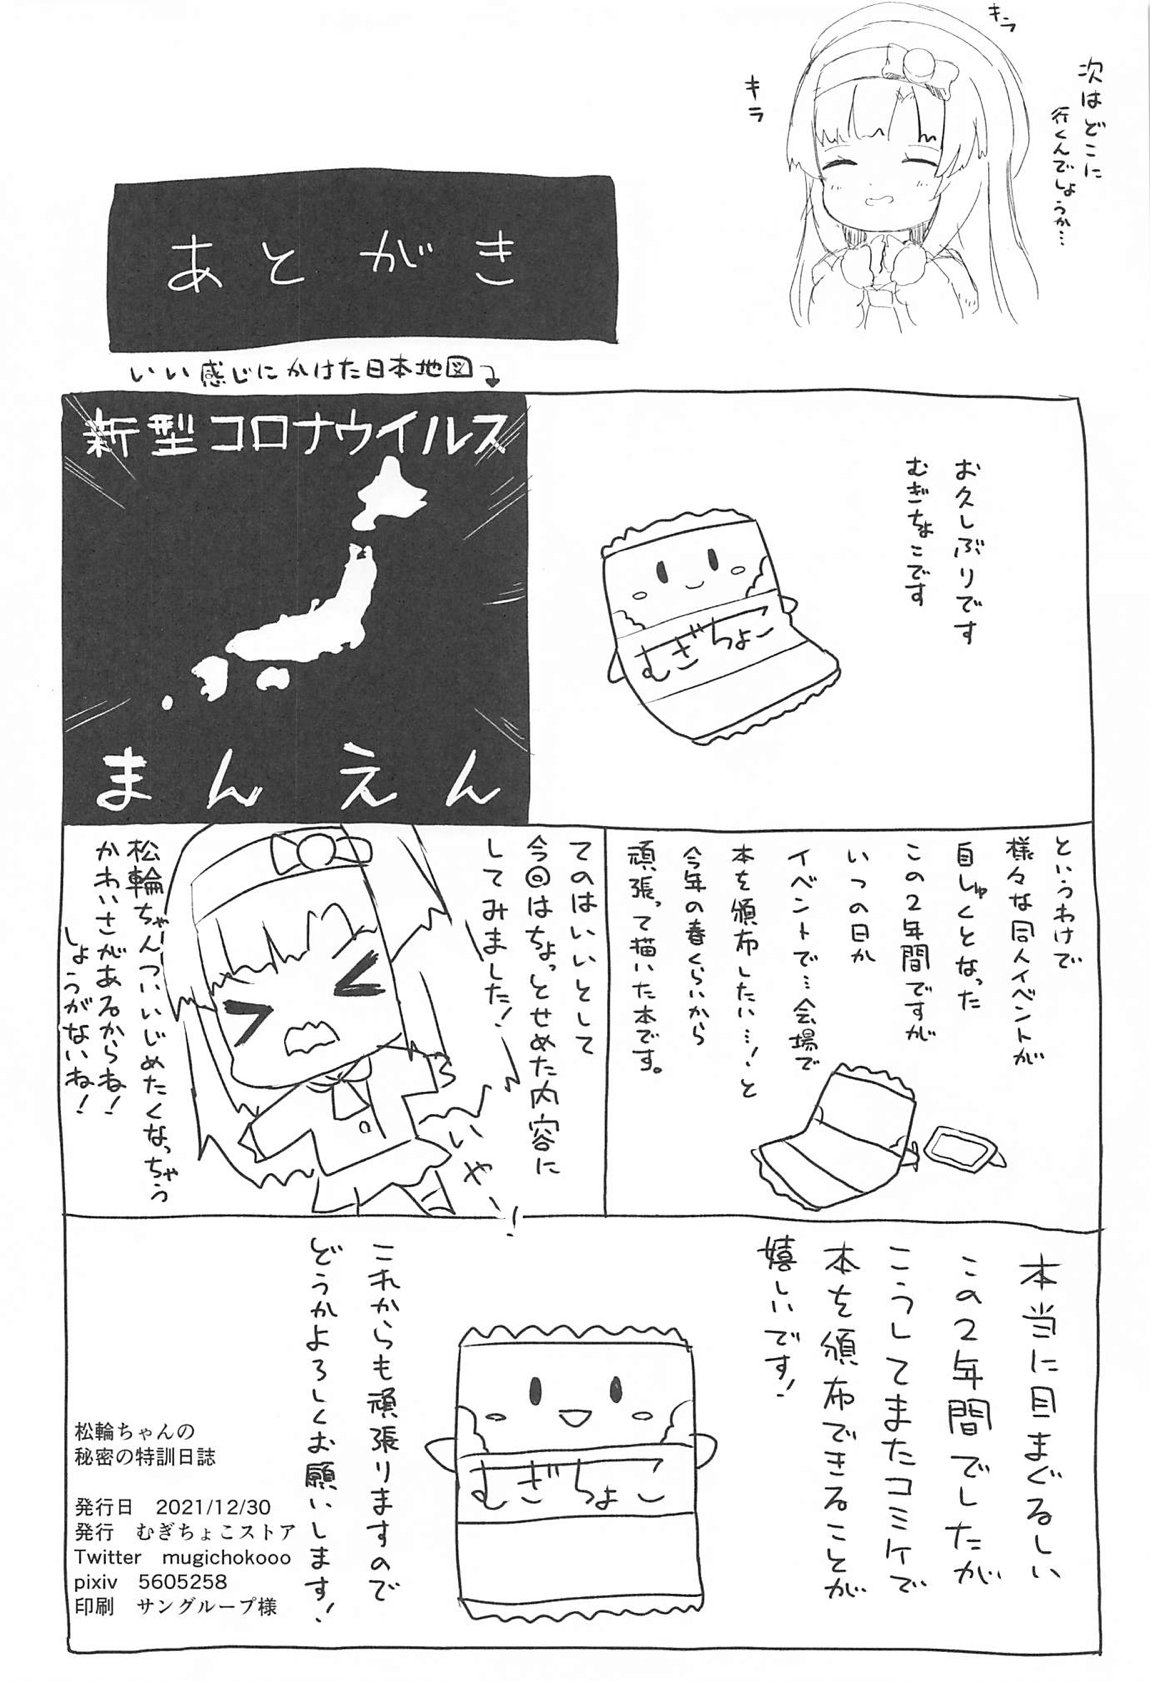 キラ
キラ
次はどこに
行くんでしょうか…
あとがき
いい感じにかけた日本地図
お久しぶりです
むぎちょこです
むぎちょこ
新型コロナウイルス
まんえん
というわけで
様々な同人イベントが
自しゅくとなった
この2年間ですが
いつの日か
イベントで…会場で
本を頒布したい…！と
今年の春くらいから
頑張って描いた本です。
てのはいいとして
今回はちょっとせめた内容に
してみました！
松輪ちゃんついいじめたくなっちゃう
かわいさがあるからね！
しょうがないね！
いやー！
本当に目まぐるしい
この2年間でしたが
こうしてまたコミケで
本を頒布できることが
嬉しいです！
むぎちょこ
これからも頑張りますので
どうかよろしくお願いします！
松輪ちゃんの
秘密の特訓日誌
発行日　2021/12/30
発行　むぎちょこストア
Twitter　mugichokooo
pixiv　5605258
印刷　サングループ様